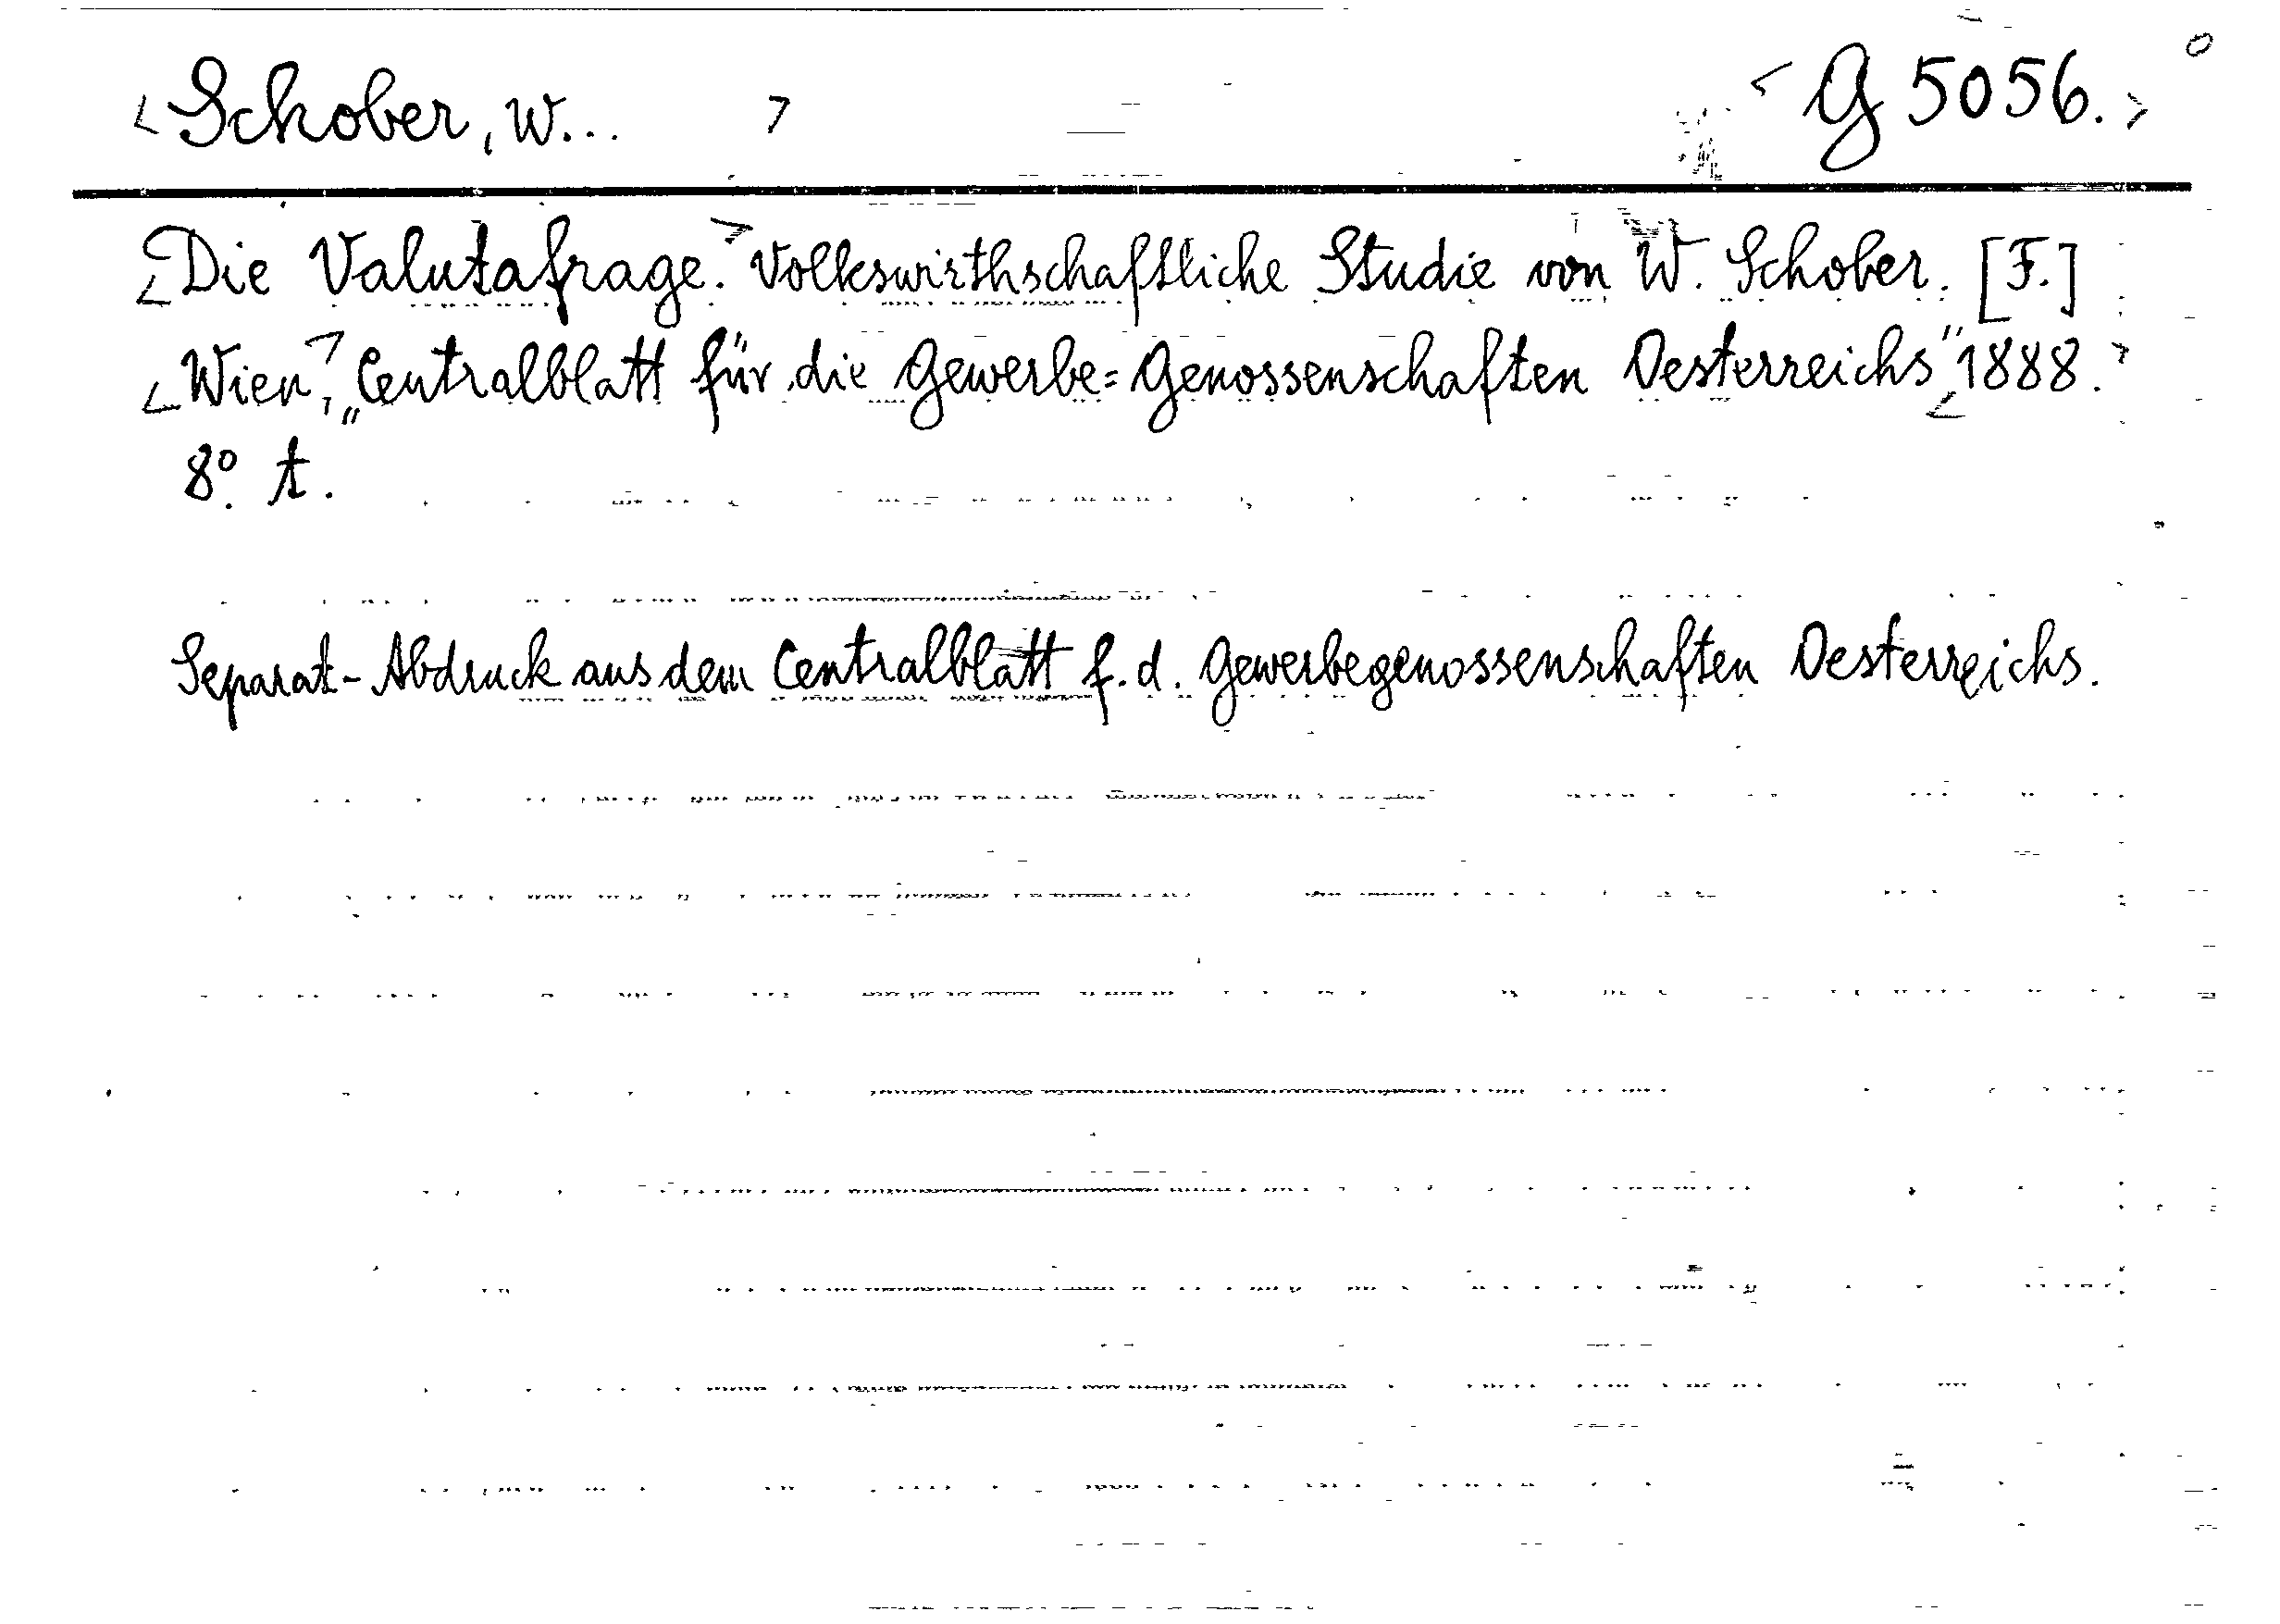 <Schober, W... > <G 5056.>
<Die Valutafrage.> Volkswirthschaftliche Studie von W. Schober. [F.]
<Wien,> „Centralblatt für die Gewerbe=Genossenschaften Oesterreichs" <1888.>
8º. t.
Separat-Abdruck aus dem Centralblatt f. d. Gewerbegenossenschaften Oesterreichs.